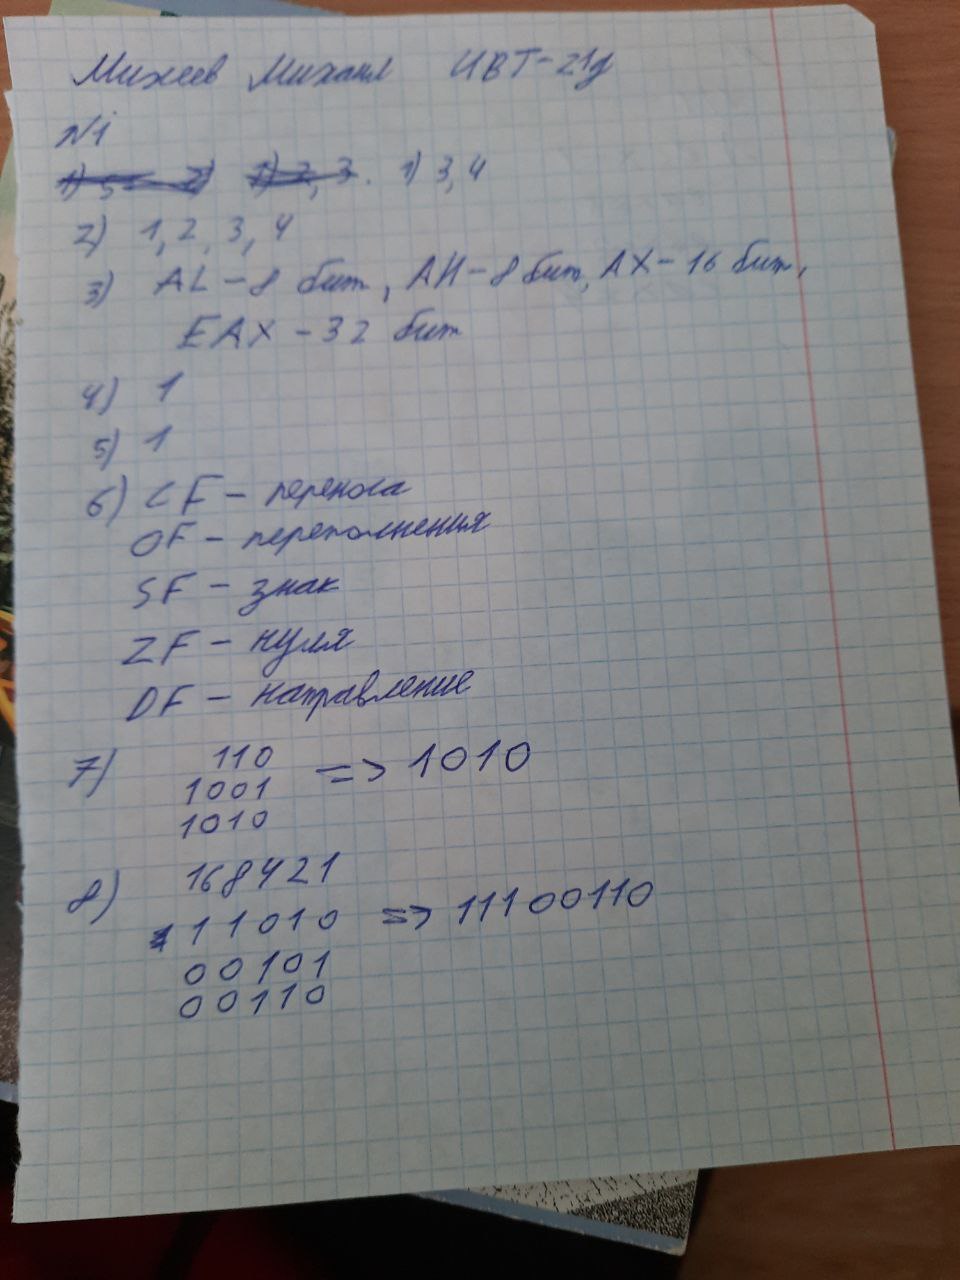 Михеев Михаил ИВТ-21д
N1
1) 3,4
2) 1,2,3,4
3) AL - 8 бит, AH - 8 бит, AX - 16 бит,
EAX - 32 бит
4) 1
5) 1
6) CF - переноса
OF - переполнения
SF - знак
ZF - нуля
DF - направление
7) 110 => 1010
1001
1010
8) 168421
11010 => 11100110
00101
00110